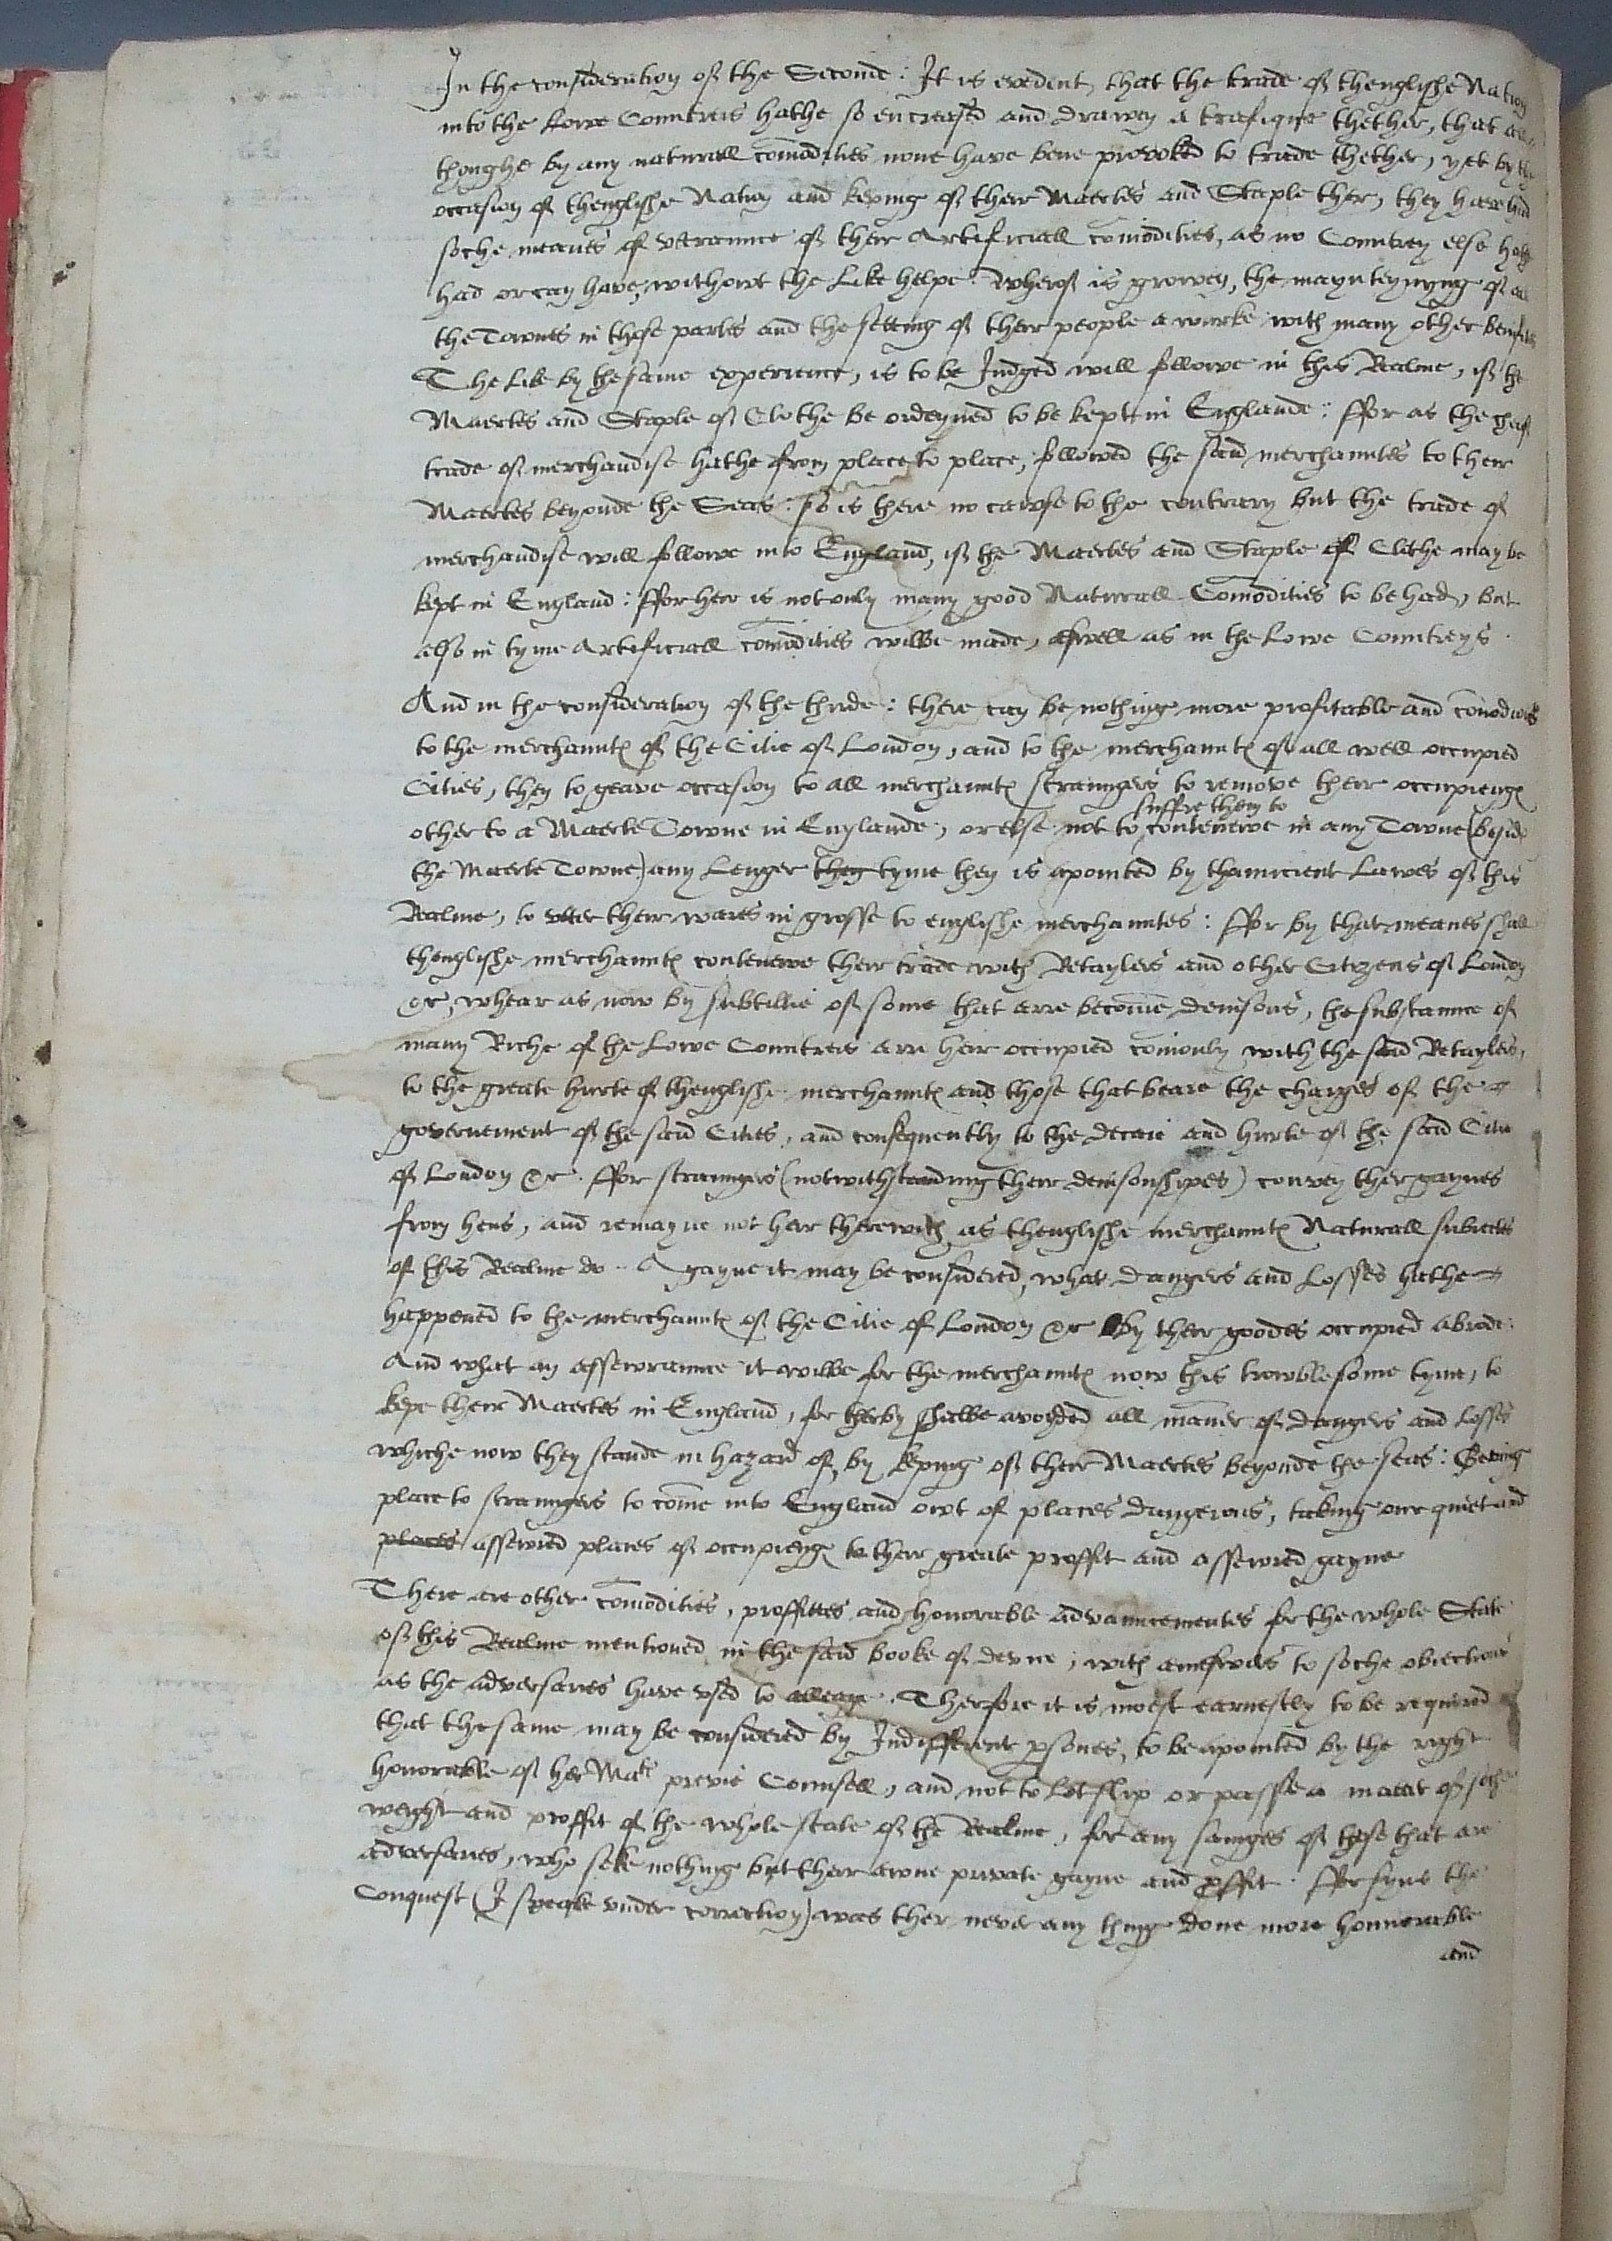 In the consideration of the Second: It is evedent, that the trade of thenglishe Nation
into the Lowe Countreis hathe so encreased and drawen a trafique thether, that
thoughe by any naturall comodities none have bene provoked to trade thether, yet by the
occasion of thenglishe Nation and keping of their Maertes and Staple ther, they have had
soche meanes of vtraunce of their Artificiall comodities, as no Countrey else hathe
had or can have, withowt the like helpe. Wherof is growen, the maynteynyng of all
the Townes in those partes and the setting of ther people a worke with many other benefittes
The like by the same experience, is to be Judged will followe in this Realme, if the
Maertes and Staple of Clothe be ordeyned to be kept in Englande: ffor as the cheif
trade of merchandise hathe from place to place, followed the said merchauntes to their
Maertes beyonde the Seas: so is there no cawse to the contrary but the trade of
merchandise will followe into England, if the Maertes and Staple of Clothe may be
kept in England: ffor heir is not only many good Naturall Comodities to be had, but
also in tyme Artificiall comodities wilbe made, aswell as in the Lowe Countreys.
And in the consideration of the thride: there can be nothing more profitable and comodius
to the merchauntes of the Citie of London, and to the merchauntes of all well occupied
Cities, then to geave occasion to all merchauntes straungers to remove their occupienges
other to a Maerte Towne in Englande, or else not to
suffre them to
contenewe in any Towne (beside
the Maerte Towne) any lenger then tyme then is apointed by thauncient Lawes of this
Realme, to vtter their wares in grosse to englishe merchauntes: ffor by that meanes shall
thenglishe merchauntes contenewe their trade with Retaylers and other Citizens of London
&c, whear as now by subtillie of some that arre become denisons, the substaunce of
many Riche of the Lowe Countreis arre heir occupied comonly with the said Retaylers,
to the greate hurte of thenglishe merchauntes and those that beare the charges of the
governement of the said Cities, and consequently to the decaie and hurte of the said Citie
of London &c. ffor straungers (notwithstanding their denisonshipes) convey ther gaynes
from hens, and remayne not heir therewith as thenglishe merchauntes Naturall subiectes
of this Realme do. Agayne it may be considered, what dangers and losses hathe
happened to the merchauntes of the Citie of London &c by their goodes occupied abrode:
And what an assewraunce it wilbe for the merchauntes now this trowblesome tyme, to
kepe their Maertes in England, for therby shalbe avoyded all maner of dangers and losses
whiche now they stande in hazard of, by keping of their Maertes beyonde the seas: Geving
place to straungers to come into England owt of places dangerous, taking our quiet and
places assewred places of occupieng to their greate proffit and assewred gayne
There are other comodities, proffittes and honorable advauncementes for the whole State
of this Realme mentioned in the said booke of devne, with answers to soche obiections
as the adversaries have vsed to alleage. Therfore it is moest earnestly to be required
that the same may be considered by Indifferent psones, to be apointed by the right
honorable of her Mates previe Counsell, and not to let slip or passe a matter of soche
weight and proffit of the whole state of the Realme, for any sainges of those that are
adversaries, who seke nothing but their awne private gayne and proffit. ffor syns the
Conquest (I speake vnder correction) was ther never any thing done more honnorable
and